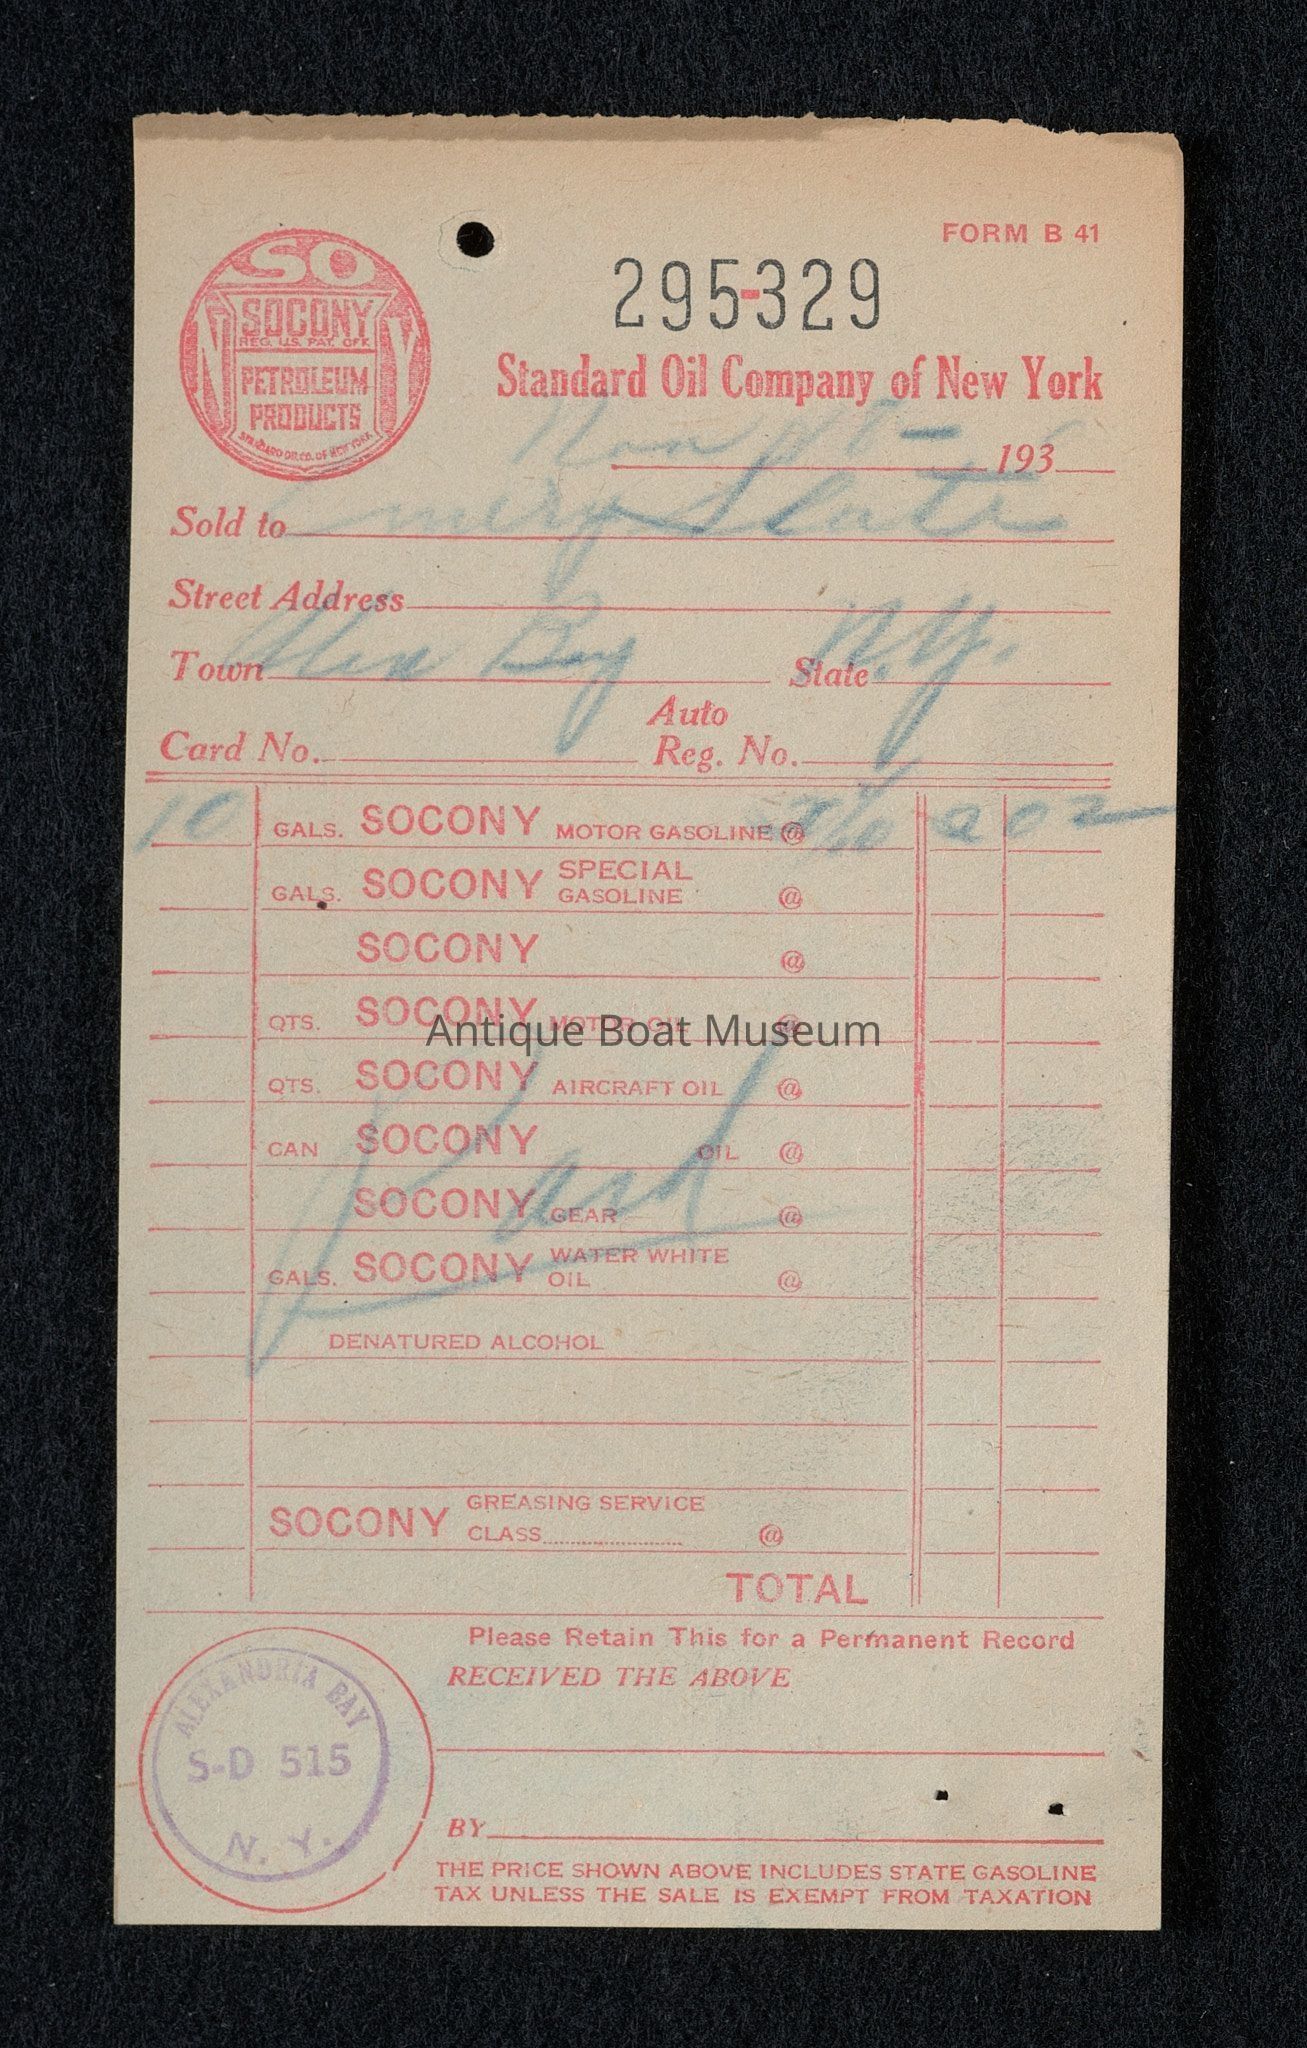 FORM B 41
SO
SOCONY
REG. U.S. PAT. OFF.
PETROLEUM
PRODUCTS
STANDARD OIL CO. OF NEW YORK
295-329
Standard Oil Company of New York
193
Sold to Emery Slate
Street Address
Town Alex Bay State N.Y.
Card No. Auto Reg. No.
10 GALS. SOCONY MOTOR GASOLINE @ 2 02
GALS. SOCONY SPECIAL GASOLINE @
SOCONY @
QTS. SOCONY MOTOR OIL @
Antique Boat Museum
QTS. SOCONY AIRCRAFT OIL @
CAN SOCONY OIL @
Paid
SOCONY GEAR @
GALS. SOCONY WATER WHITE OIL @
DENATURED ALCOHOL
SOCONY GREASING SERVICE
CLASS @
TOTAL
Please Retain This for a Permanent Record
RECEIVED THE ABOVE
ALEXANDRIA BAY
S-D 515
N. Y.
BY
THE PRICE SHOWN ABOVE INCLUDES STATE GASOLINE
TAX UNLESS THE SALE IS EXEMPT FROM TAXATION